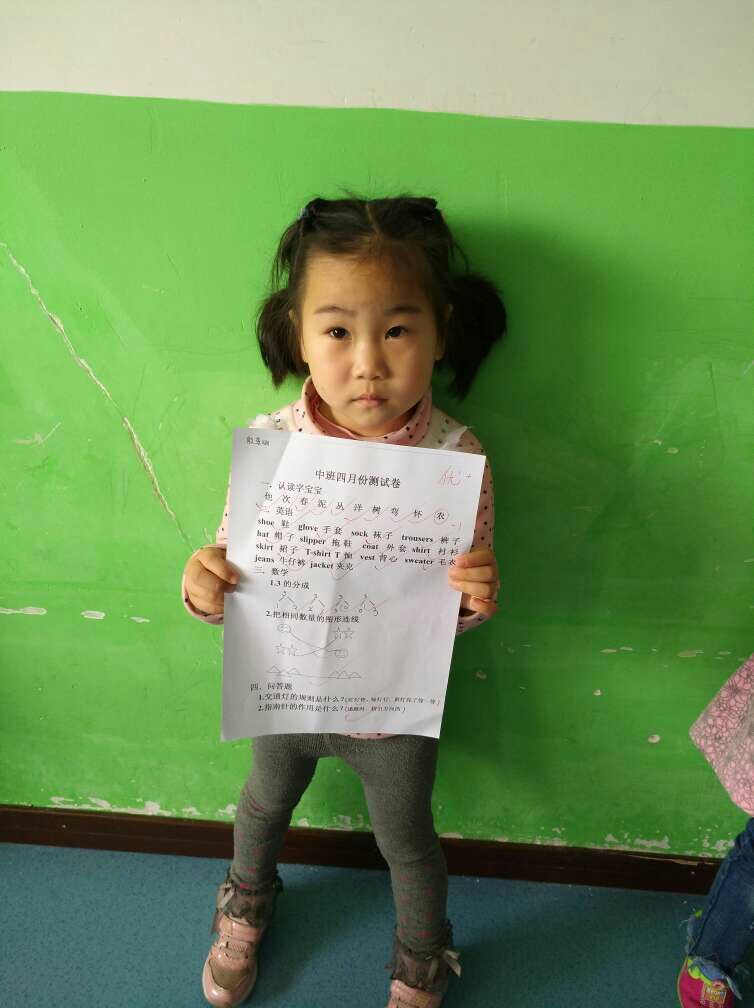 优+
中班四月份测试卷
一、认读字宝宝
他 次 春 泥 丛 洋 树 弯 杯 农
二、英语
-1
shoe 鞋 glove 手套 sock 袜子 trousers 裤子
hat 帽子 slipper 拖鞋 coat 外套 shirt 衬衫
skirt 裙子 T-shirt T恤 vest 背心 sweater 毛衣
jeans 牛仔裤 jacket 夹克
三、数学
1.3 的分成
2.把相同数量的图形连线
四、问答题
1.交通灯的规则是什么？(红灯停、绿灯行、黄灯亮了等一等)
2.指南针的作用是什么？